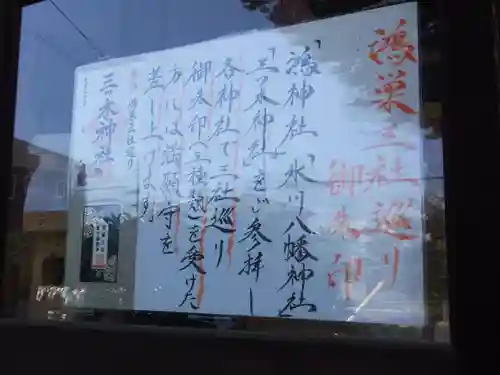 鴻巣三社巡り
御朱印
「鴻神社」「氷川八幡神社」
「三ツ木神社」をご参拝し
各神社で三社巡り
御朱印(三種類)を受けた
方には満願守を
差し上げます
鴻巣三社巡り
三ツ木神社